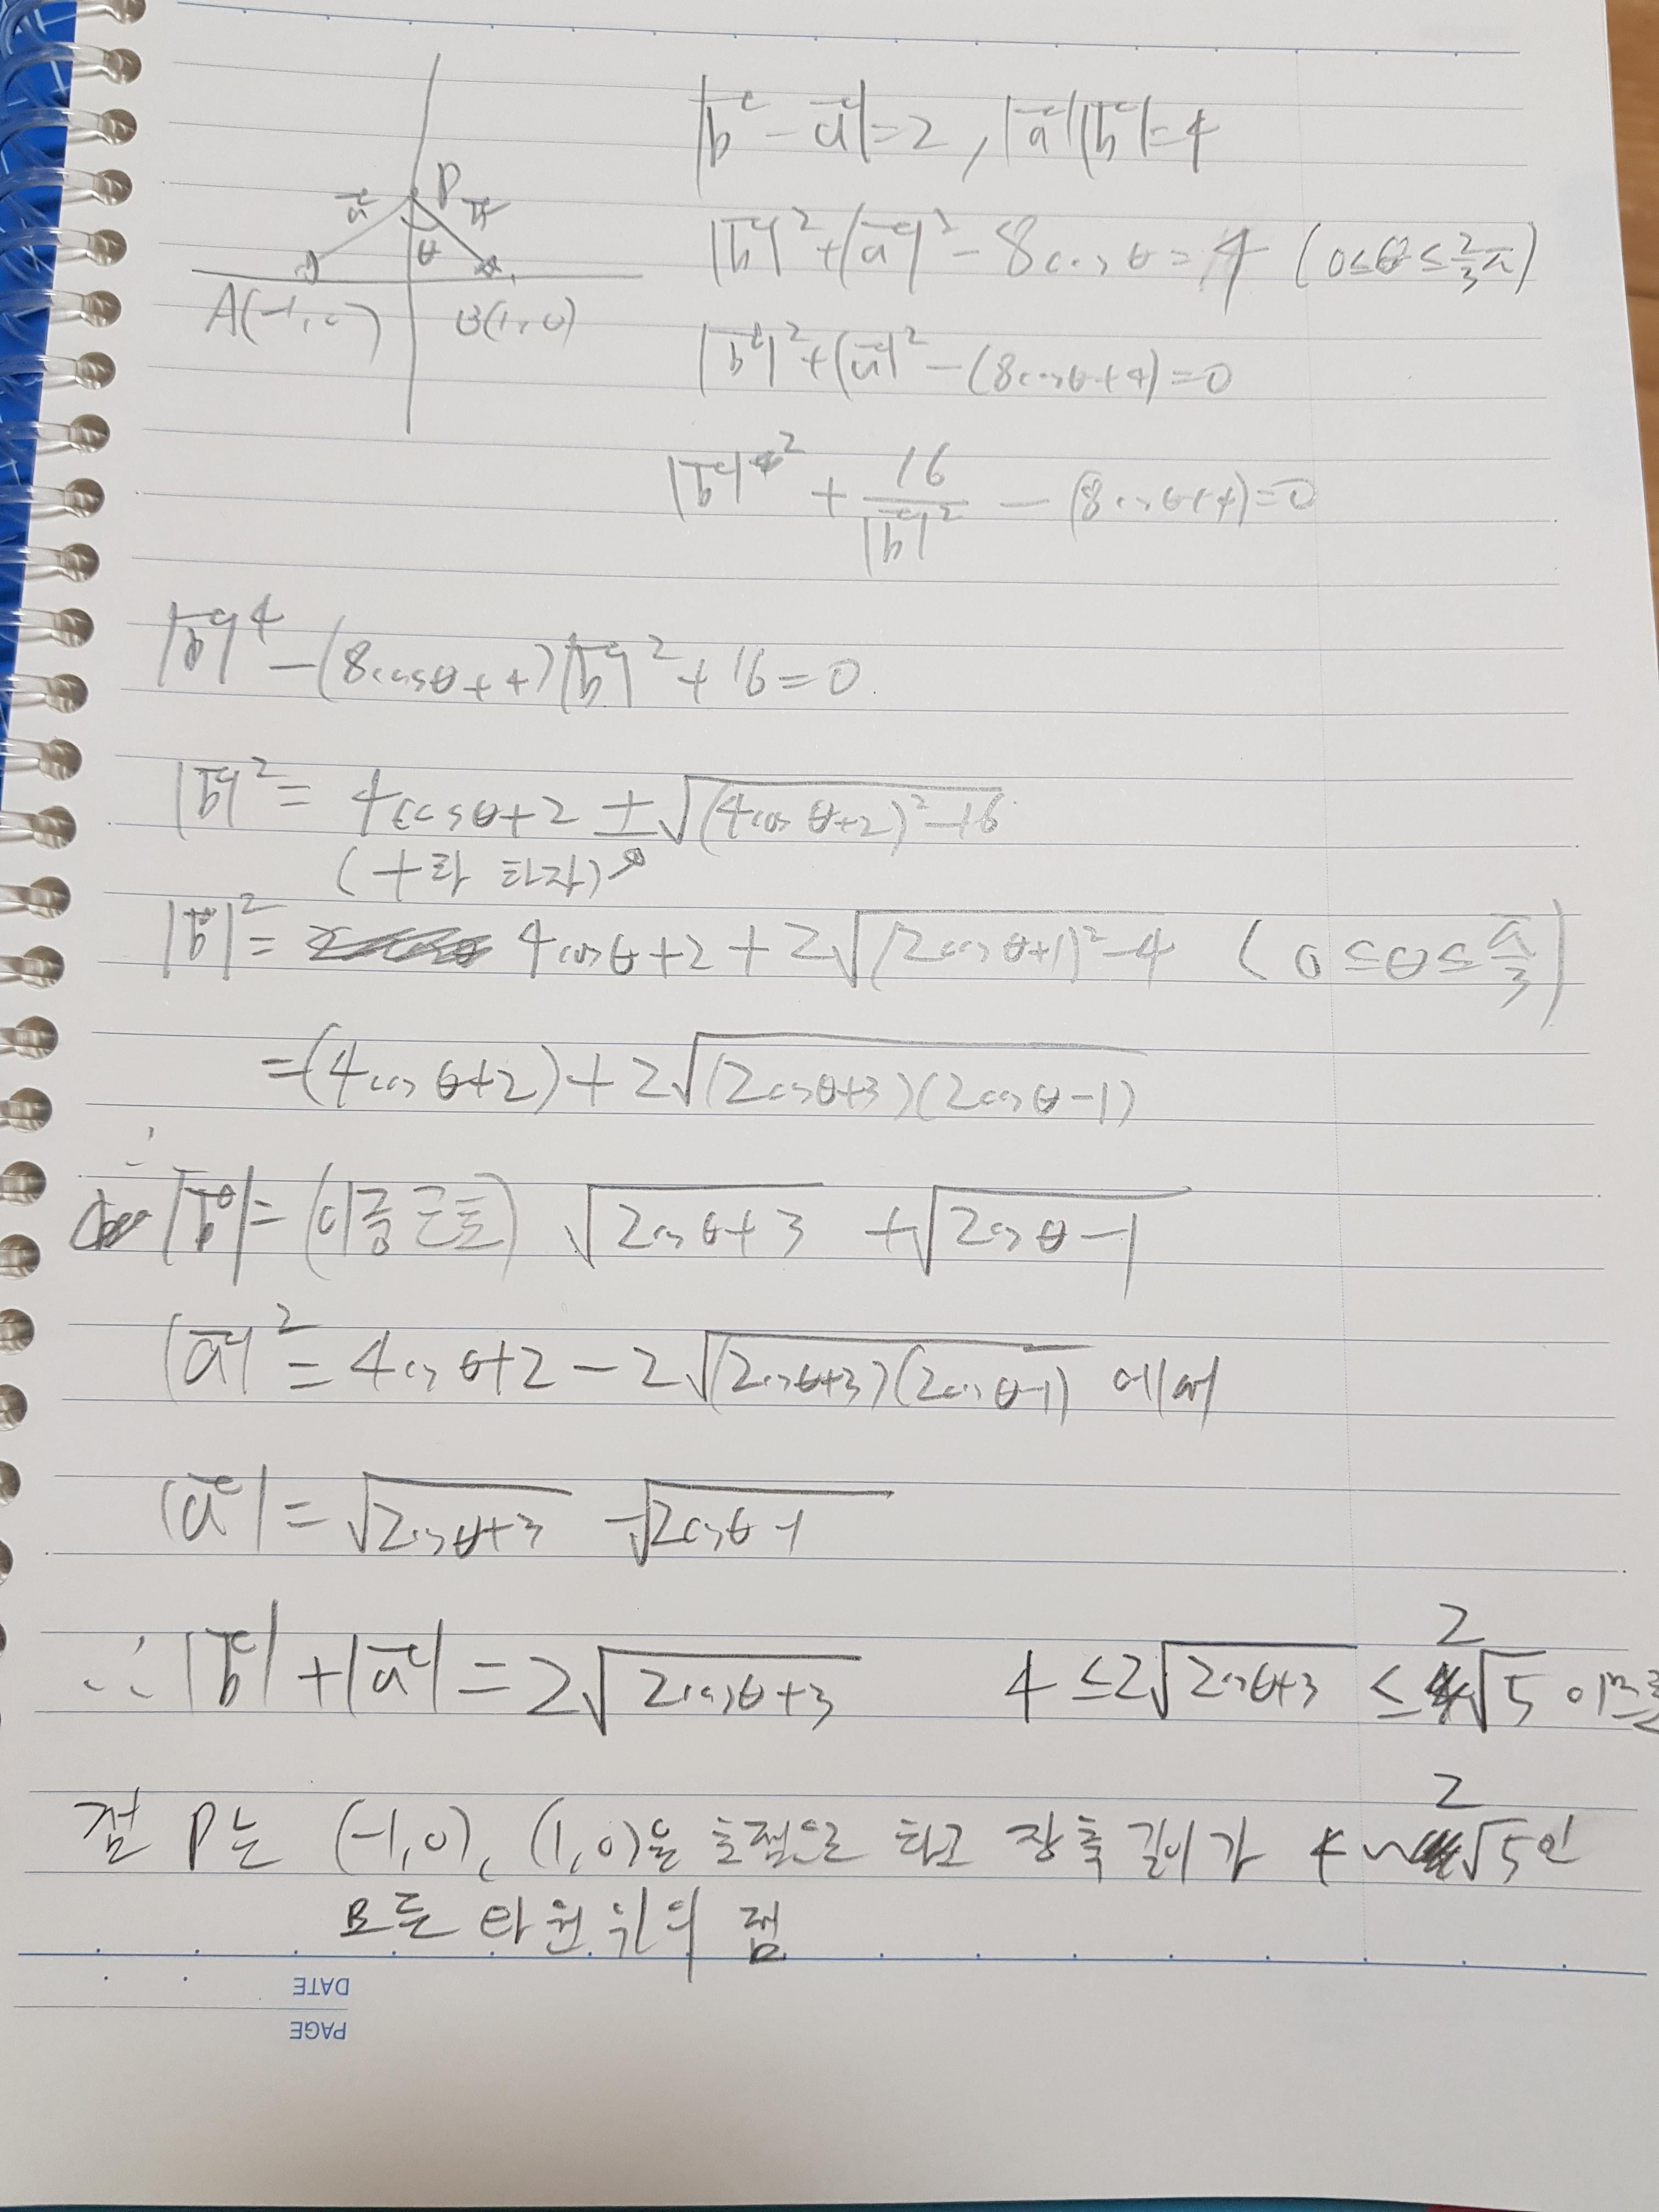 |b⃗ - a⃗| = 2, |a⃗||b⃗| = 4
P
a⃗
b⃗
θ
A(-1, 0) B(1, 0)
|b⃗|² + |a⃗|² - 8cosθ = 4 (0 ≤ θ ≤ 2/3 π)
|b⃗|² + |a⃗|² - (8cosθ+4) = 0
|b⃗|² + 16/|b⃗|² - (8cosθ+4) = 0
|b⃗|⁴ - (8cosθ+4)|b⃗|² + 16 = 0.
|b⃗|² = 4cosθ+2 ± √((4cosθ+2)² - 16)
(+라 하자)↗
|b⃗|² = 4cosθ+2 + 2√((2cosθ+1)² - 4) (0 ≤ θ ≤ π/3)
= (4cosθ+2) + 2√((2cosθ+3)(2cosθ-1))
∴ |b⃗| = (이중근호) √(2cosθ+3) + √(2cosθ-1)
|a⃗|² = 4cosθ+2 - 2√((2cosθ+3)(2cosθ-1)) 에서
|a⃗| = √(2cosθ+3) - √(2cosθ-1)
∴ |b⃗| + |a⃗| = 2√(2cosθ+3) 4 ≤ 2√(2cosθ+3) ≤ 2√5 이므로
점 P는 (-1,0), (1,0)을 초점으로 하고 장축 길이가 4 ~ 2√5인
모든 타원 위의 점
DATE
PAGE